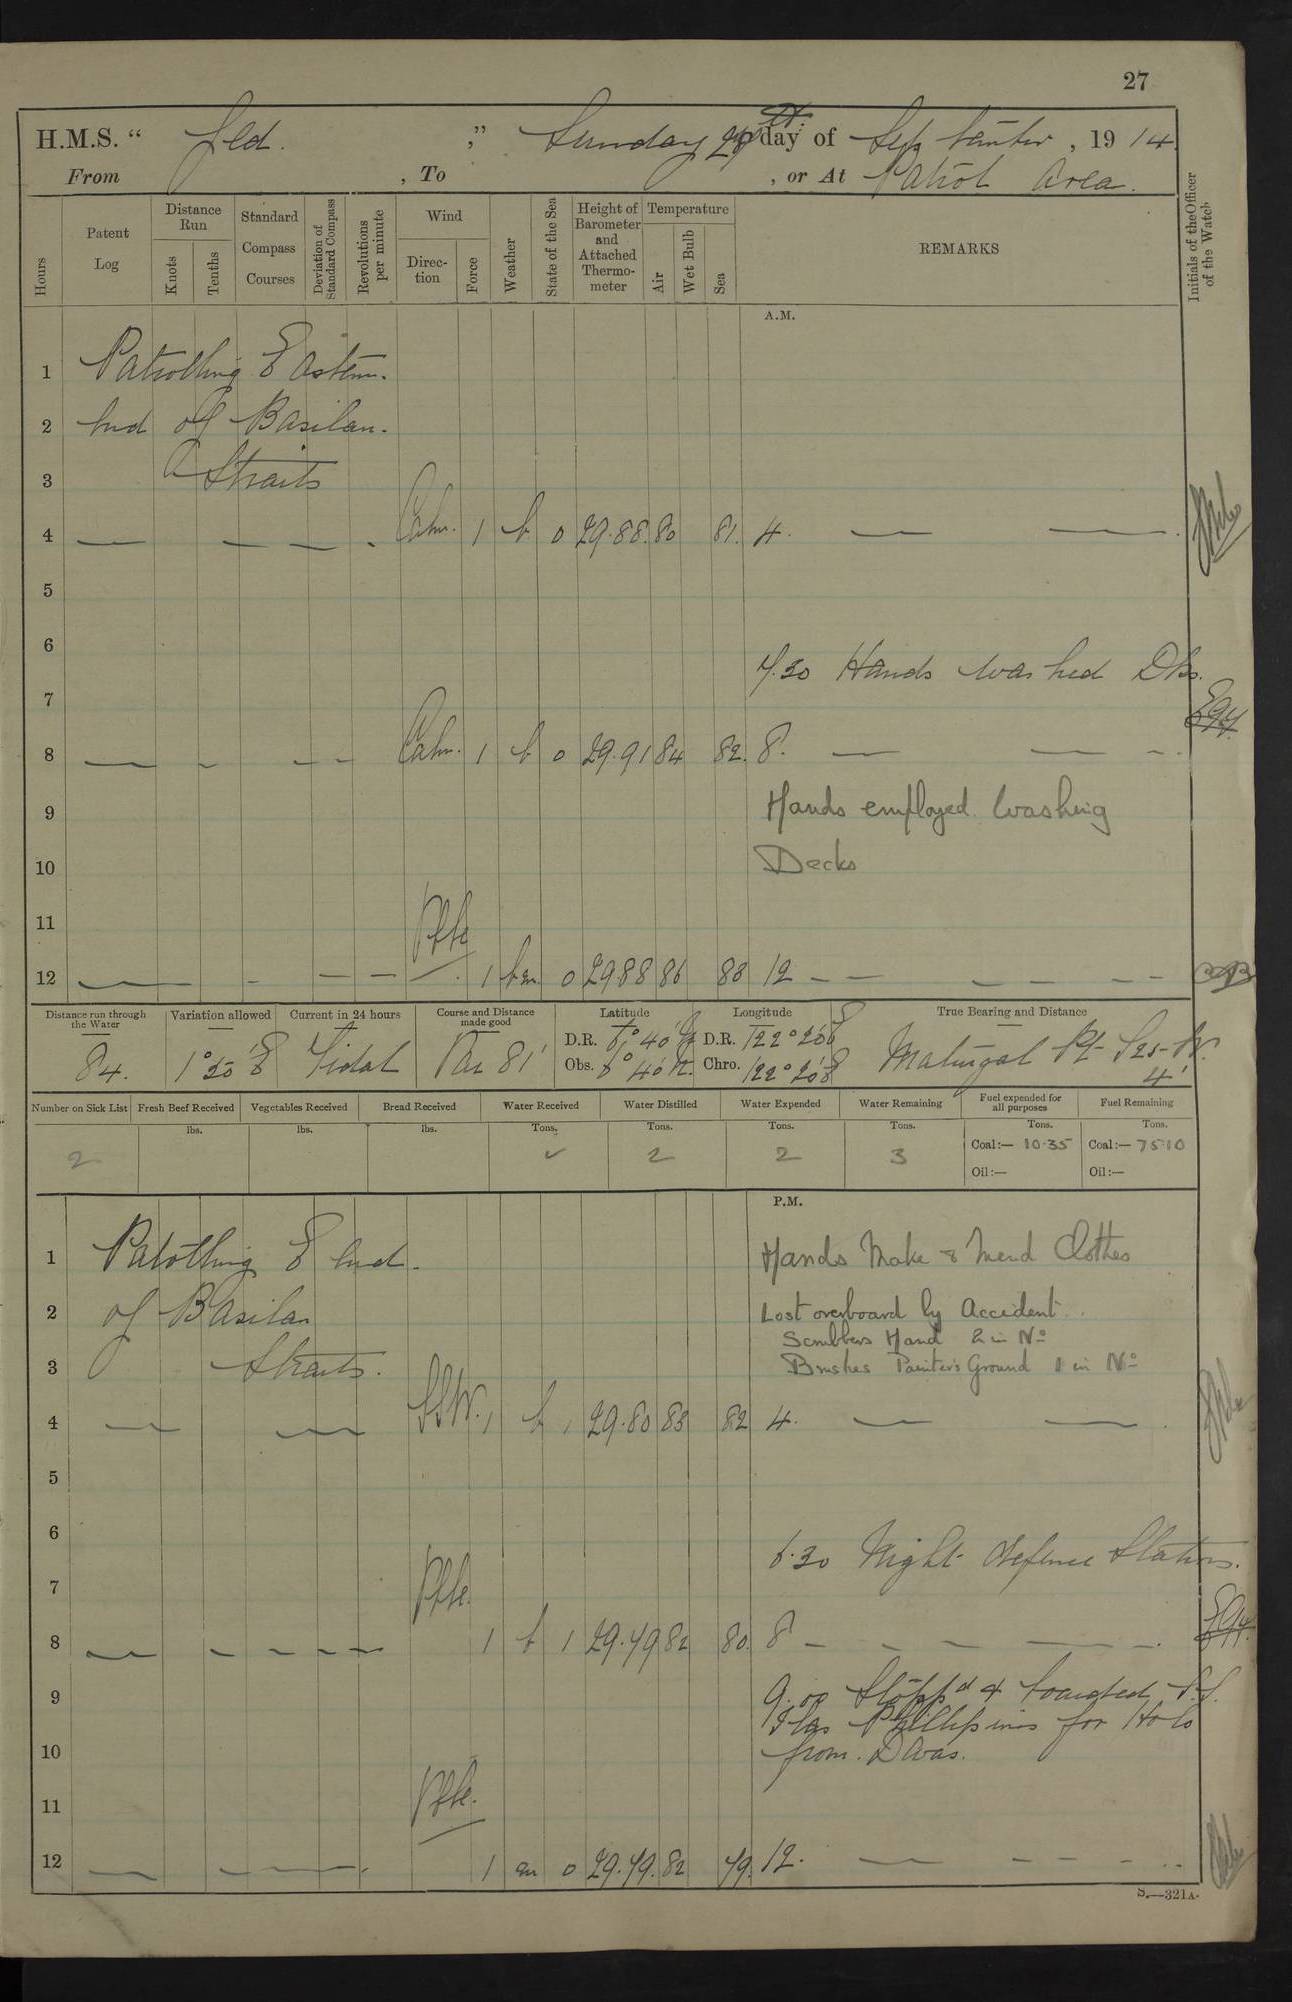 27
H.M.S. “ Jed. ,” Sunday 27th day of September, 1914.
From , To , or At Patrol Area.
Hours
Patent Log
Distance Run
Knots
Tenths
Standard Compass Courses
Deviation of Standard Compass
Revolutions per minute
Wind
Direction
Force
Weather
State of the Sea
Height of Barometer and Attached Thermometer
Temperature
Air
Wet Bulb
Sea
REMARKS
Initials of the Officer of the Watch
A.M.
1 Patrolling Eastern.
2 End of Basilan.
3 Straits
4 Calm. 1 b 0 29.88. 80 81. 4.
5
6
7.30 Hands washed Dks.
7
8 Calm. 1 b 0 29.91 84 82. 8.
9 Hands employed washing
10 Decks
11
12 1 bm 0 29.88 86 83 12
Distance run through the Water
Variation allowed
Current in 24 hours
Course and Distance made good
Latitude
Longitude
True Bearing and Distance
84.
1° 50' E
Tidal
Var 81'
D.R. 6° 40' N
Obs. 6° 40' N.
D.R. 122° 20' E
Chro. 122° 20' E
Matingal Pt S 25 W. 4'
Number on Sick List
Fresh Beef Received
Vegetables Received
Bread Received
Water Received
Water Distilled
Water Expended
Water Remaining
Fuel expended for all purposes
Fuel Remaining
lbs. lbs. lbs. Tons. Tons. Tons. Tons. Tons. Tons.
2 2 2 3 Coal:— 10.35 Coal:— 75.10
Oil:— Oil:—
P.M.
1 Patrolling E End. Hands Make & Mend Clothes
2 of Basilan Lost overboard by Accident
Scrubbers Hand 2 in No
3 Straits. Brushes Painter's Ground 1 in No
4 SSW. 1 b 1 29.80 83 82 4.
5
6
6.30 Night defence Stations.
7
8 1 b 1 29.79 82 80. 8
9 9.00 Stopp'd & boarded S.S.
Islas Phillipines for Holo
10 from Davao.
11
12 1 m 0 29.79. 82 79. 12.
S.—321A.